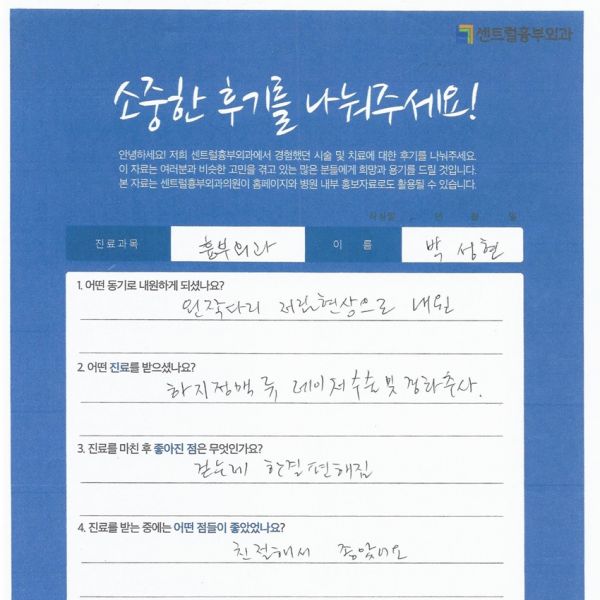 센트럴흉부외과
소중한 후기를 나눠주세요!
안녕하세요! 저희 센트럴흉부외과에서 경험했던 시술 및 치료에 대한 후기를 나눠주세요.
이 자료는 여러분과 비슷한 고민을 겪고 있는 많은 분들에게 희망과 용기를 드릴 것입니다.
본 자료는 센트럴흉부외과의원이 홈페이지와 병원 내부 홍보자료로도 활용될 수 있습니다.
작성일 년 월 일
진료과목 흉부외과 이 름 박성현
1. 어떤 동기로 내원하게 되셨나요?
왼쪽다리 저림현상으로 내원
2. 어떤 진료를 받으셨나요?
하지정맥류, 레이저수술 및 경화주사.
3. 진료를 마친 후 좋아진 점은 무엇인가요?
걷는데 한결 편해짐
4. 진료를 받는 중에는 어떤 점들이 좋았었나요?
친절해서 좋았어요